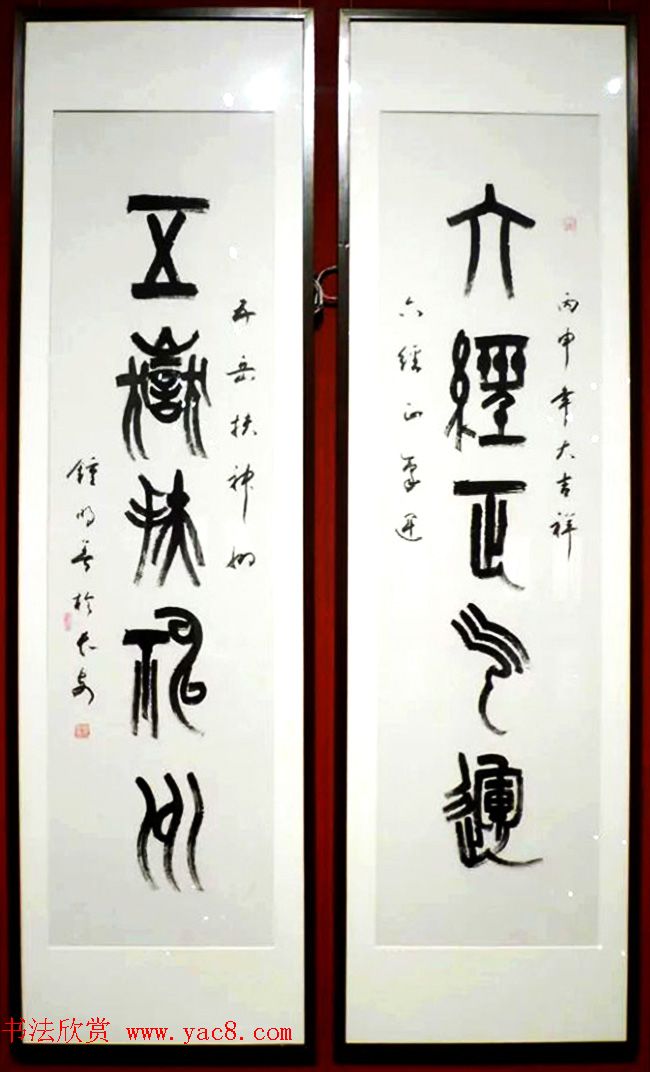 丙申年大吉祥
六經正气運
六經正气運
五岳扶神州
五嶽扶神州
鍾明善於長安
书法欣赏 www.yac8.com